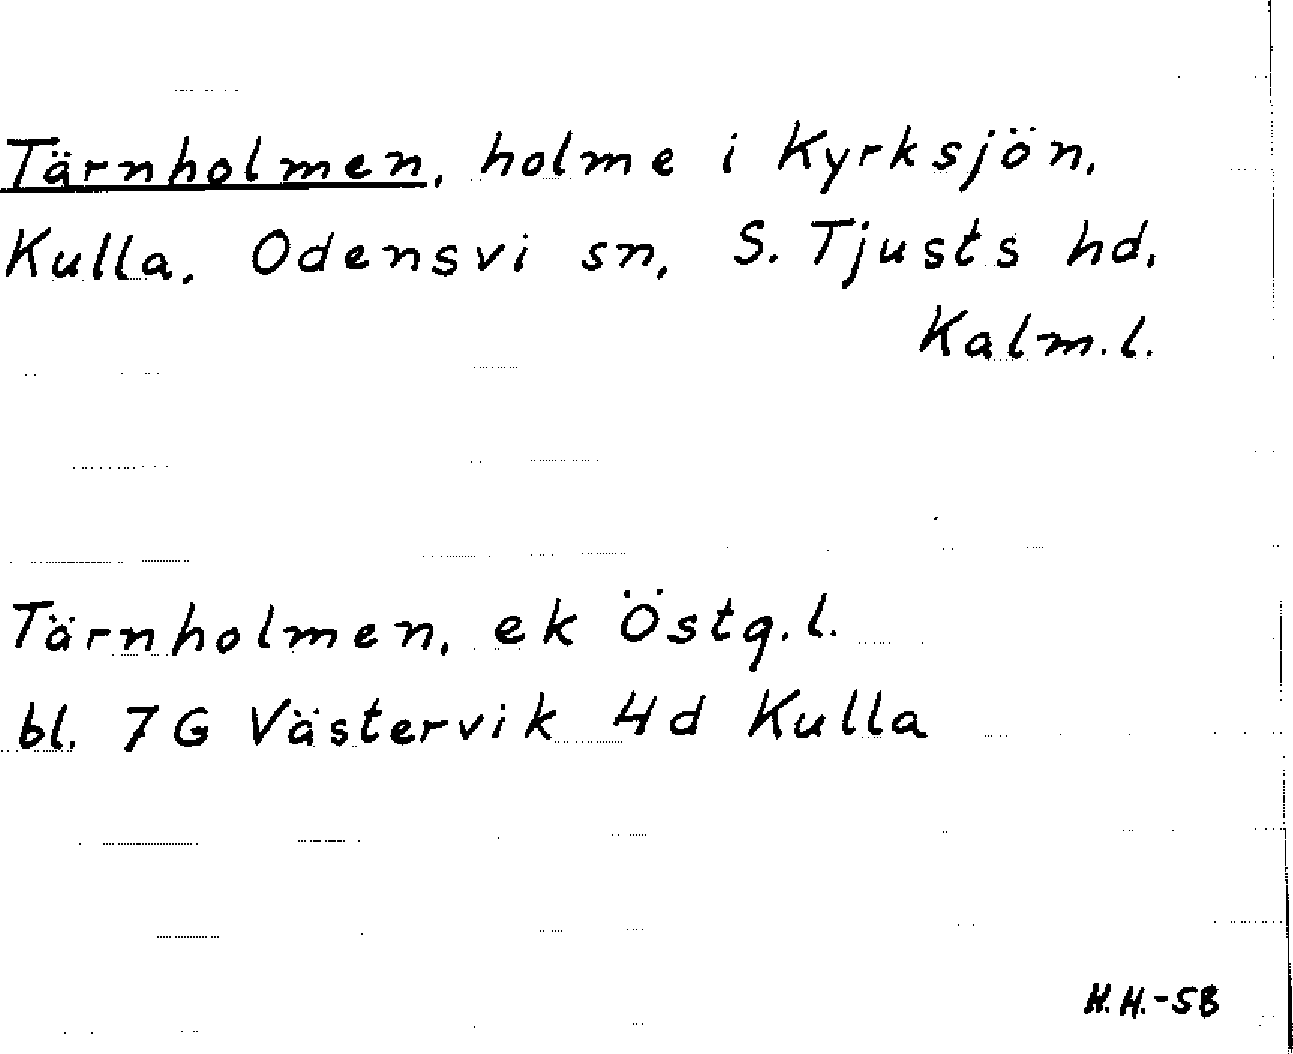 Tärnholmen, holme i Kyrksjön,
Kulla, Odensvi sn, S. Tjusts hd,
Kalm. l.
Tärnholmen, ek Östg. l.
bl. 7G Västervik 4d Kulla
H.H.-58